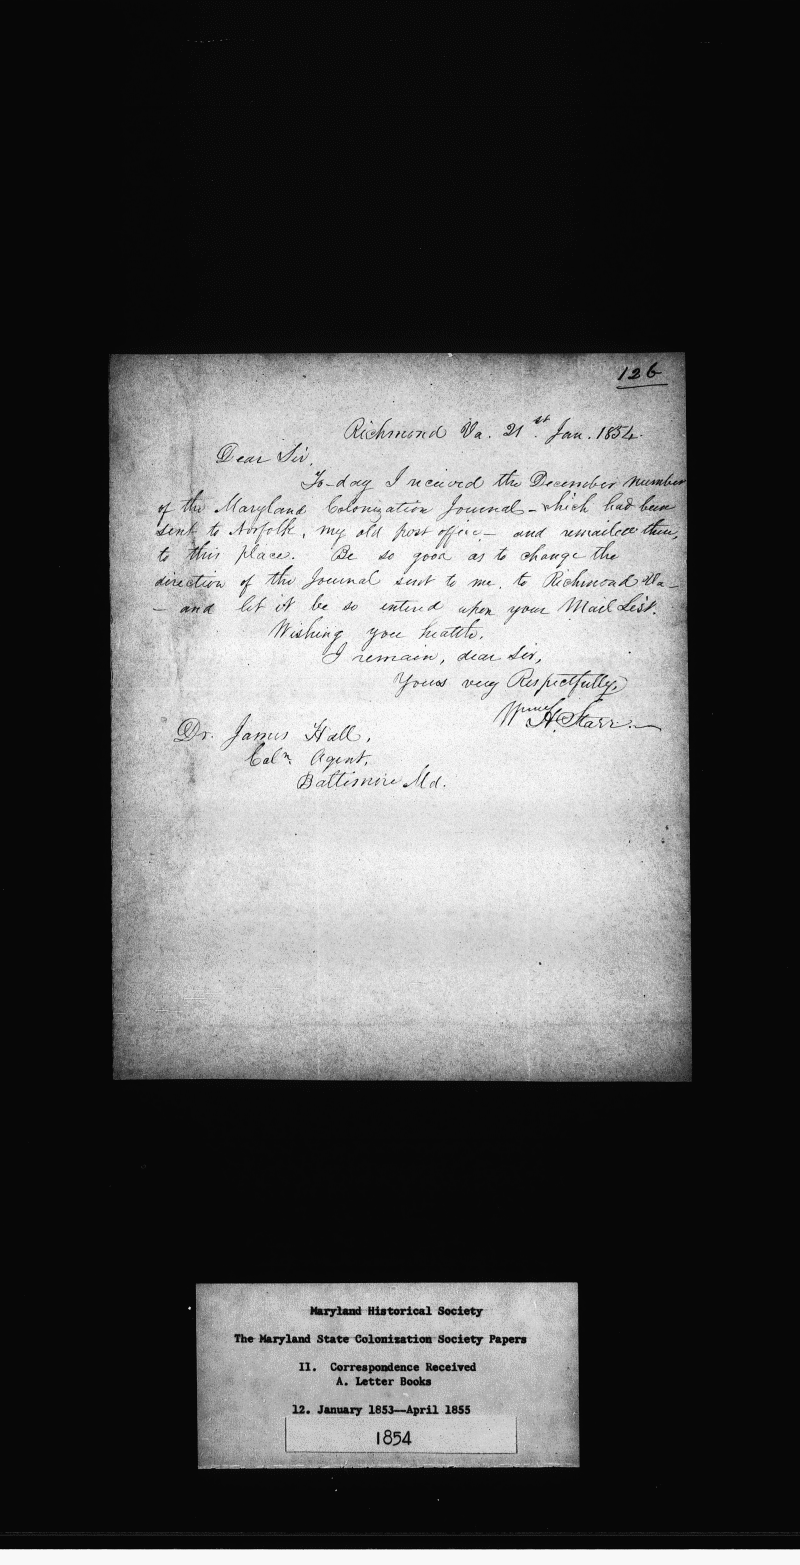 126
Richmond Va. 21st Jan. 1854.
Dear Sir,
To-day I received the December number
of the Maryland Colonization Journal - which had been
sent to Norfolk, my old post office - and remailed there,
to this place. Be so good as to change the
direction of the Journal sent to me, to Richmond Va -
- and let it be so entered upon your Mail List.
Wishing you health,
I remain, dear Sir,
Yours very Respectfully,
Wm H. Starr.
Dr. James Hall,
Coln. Agent,
Baltimore Md.
Maryland Historical Society
The Maryland State Colonization Society Papers
II. Correspondence Received
A. Letter Books
12. January 1853--April 1855
1854